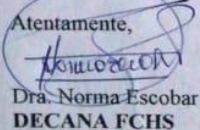 Atentamente,
Dra. Norma Escobar
DECANA FCHS